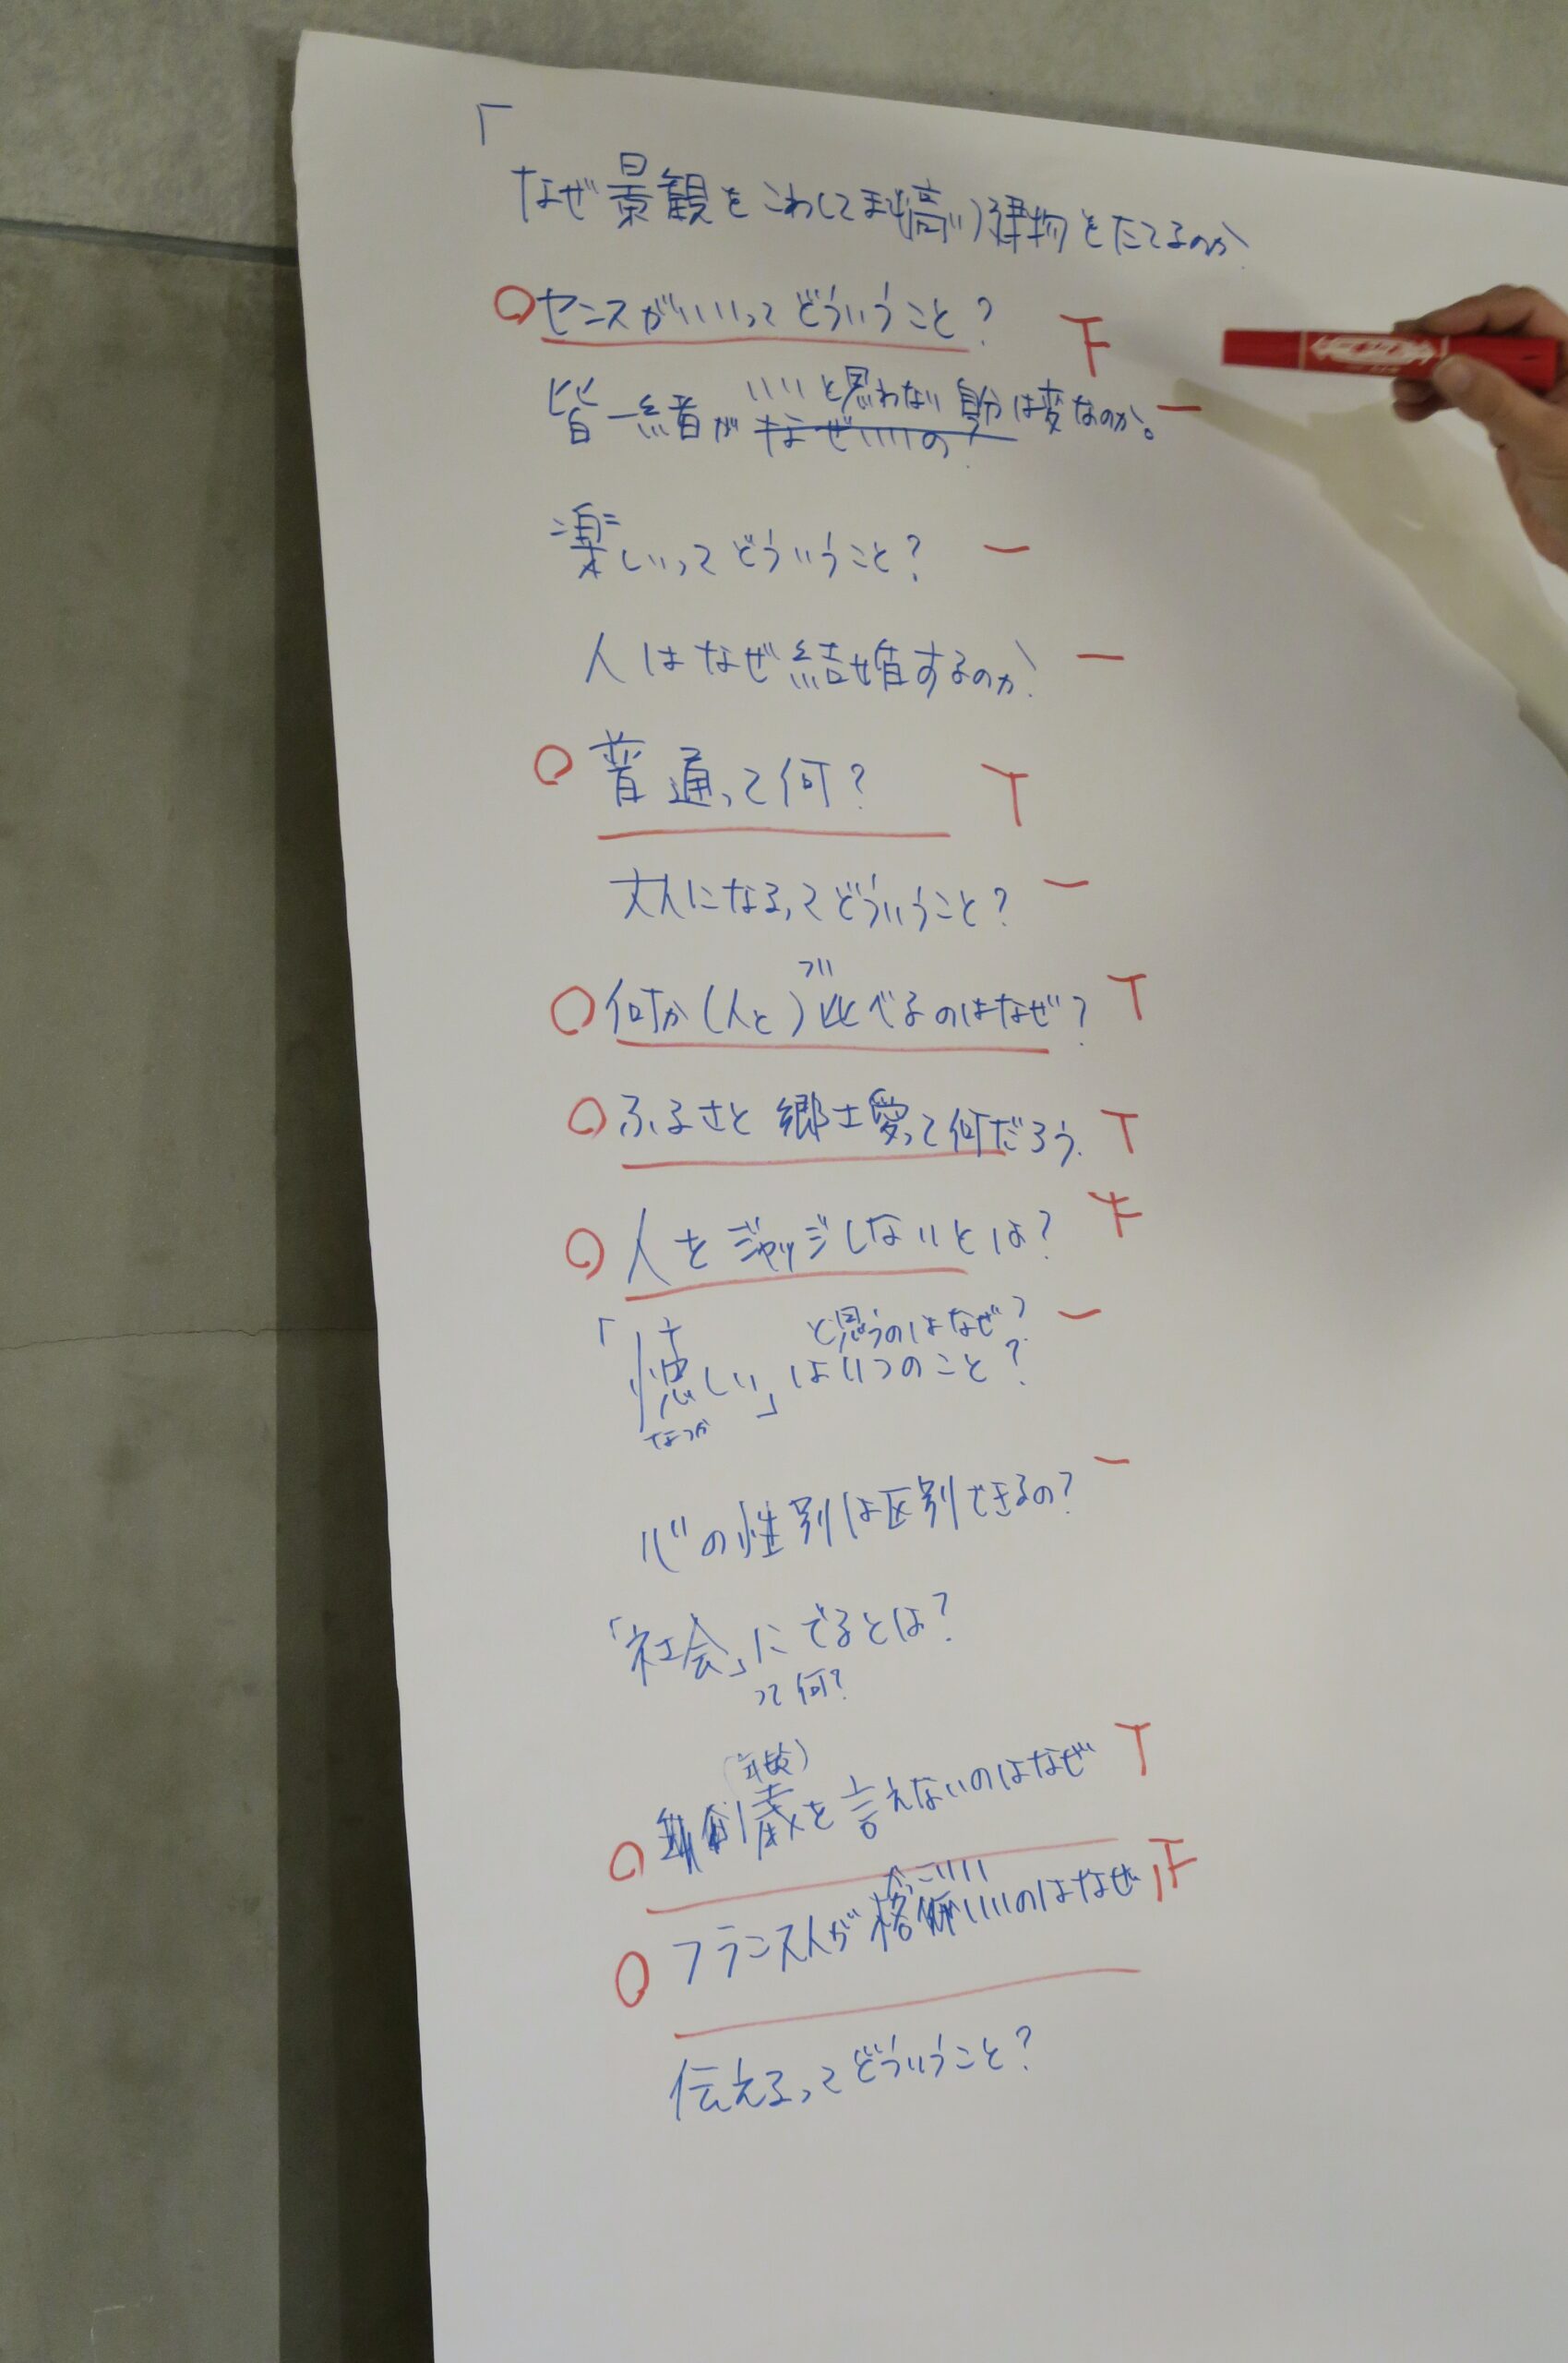 「
なぜ景観をこわしてまで高い建物をたてるのか
○センスがいいってどういうこと? 下
皆一緒が いいと思わない自分は変なのか。 一
なぜいいの?
楽しいってどういうこと? 一
人はなぜ結婚するのか 一
○ 普通って何? T
大人になるってどういうこと? 一
○何か(人と)比べるのはなぜ? T
○ふるさと 郷土愛って何だろう. T
○ 人をジャッジしないとは?
と思うのはなぜ? 一
「懐しい」はいつのこと?
なつか
心の性別は区別できるの? 一
「社会」にでるとは?
って何?
(年齢)
○ 歳を言えないのはなぜ T
かっこいい
○ フランス人が いいのはなぜ 正
伝えるってどういうこと?